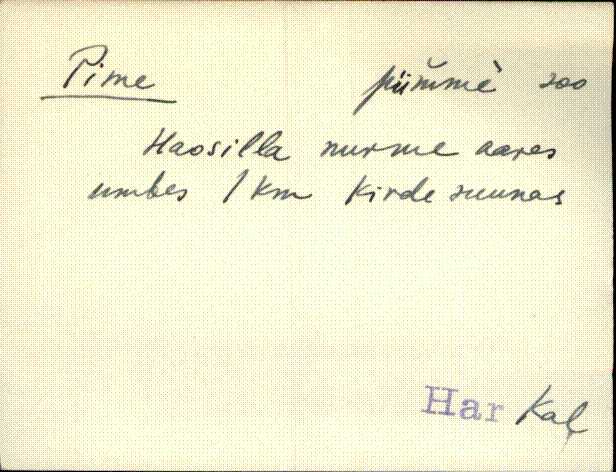 Pime pìim̆mè soo
Haosilla nurme aares
umbes 1 km kirde suunas
Har Kal